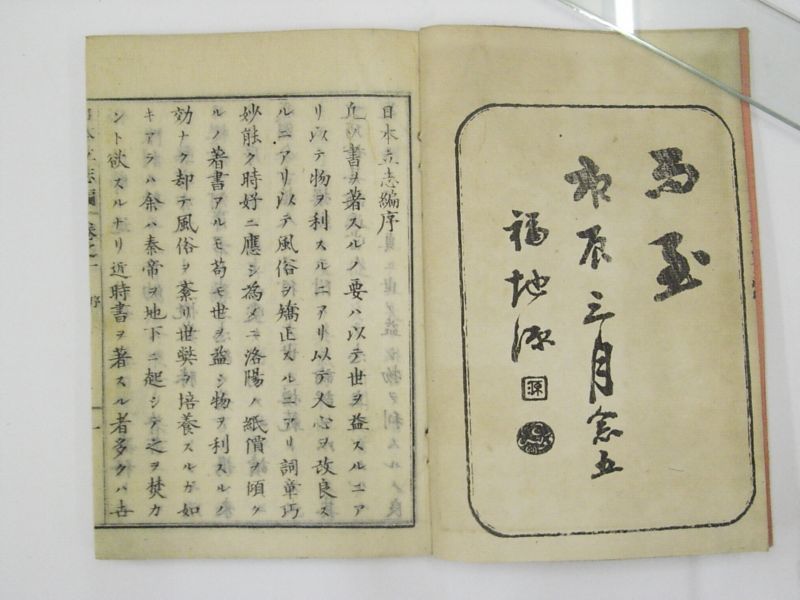 庚辰三月念五
福地源
源
日本立志編序
凡ソ書ヲ著スルノ要ハ以テ世ヲ益スルニア
リ以テ物ヲ利スルニアリ以テ人心ヲ改良ス
ルニアリ以テ風俗ヲ矯正スルニアリ詞章巧
妙能ク時好ニ應シ為メニ洛陽ノ紙價ヲ傾ク
ルノ著書アルモ苟モ世ヲ益シ物ヲ利スルノ
効ナク却テ風俗ヲ紊リ世弊ヲ培養スルガ如
キアラハ余ハ秦帝ヲ地下ニ起シテ之ヲ焚カ
ント欲スルナリ近時書ヲ著スル者多クハ
日本立志編 巻之一 序 一